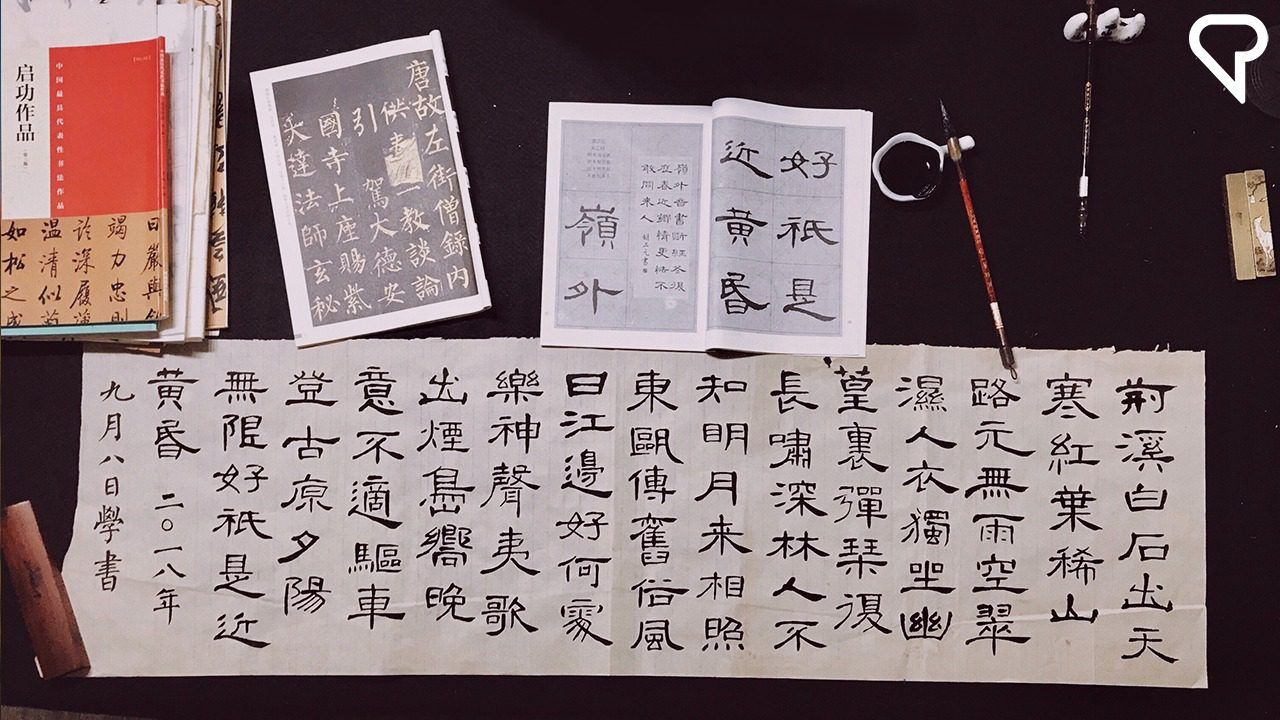 启功作品
中国最具代表性书法作品
曰嚴與
竭力忠則
深履薄
温清似
如松之
唐故左街僧錄内
供奉三教談論
引駕大德安
國寺上座賜紫
大達法師玄秘
好祇是
近黄昏
嶺外音書断經冬復
立春近鄉情更怯不
敢問来人
嶺外
荆溪白石出天
寒紅葉稀山
路元無雨空翠
濕人衣獨坐幽
篁裏彈琴復
長嘯深林人不
知明月来相照
東甌傳舊俗風
日江邊好何處
樂神聲夷歌
出煙島嚮晚
意不適驅車
登古原夕陽
無限好祇是近
黄昏 二〇一八年
九月八日學書